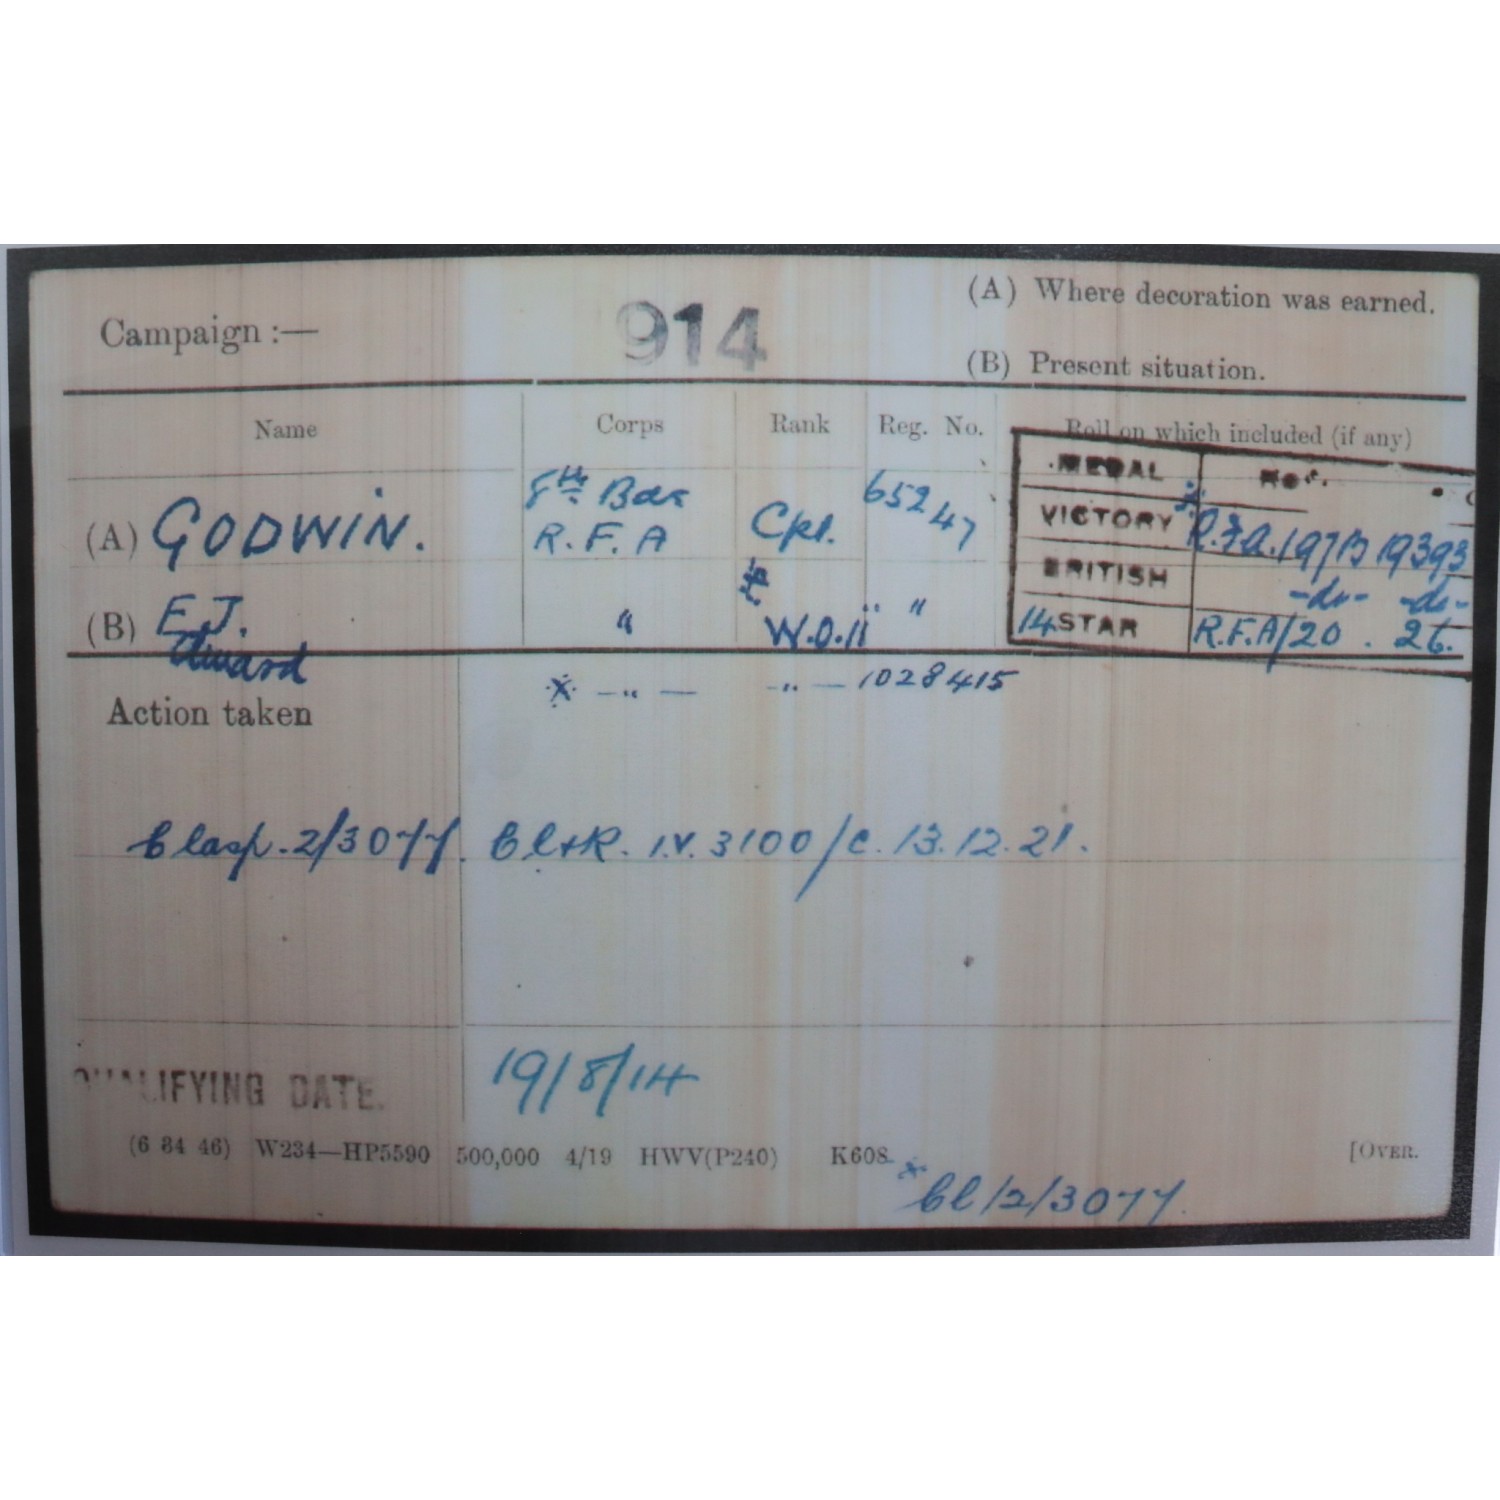 (A) Where decoration was earned.
Campaign :— 914
(B) Present situation.
Name Corps Rank Reg. No. Roll on which included (if any)
MEDAL
(A) GODWIN. 8th Bde R.F.A Cpl. 65247
VICTORY R.F.A. 197B 19393
BRITISH -do- -do-
14 STAR R.F.A/20 . 26.
(B) E.J. " W.O.ii "
Edward
* —"— —"— 1028415
Action taken
Clasp. 2/3077. Cl+R. I.V. 3100/C. 13.12.21.
QUALIFYING DATE. 19/8/14
(6 34 46) W234—HP5590 500,000 4/19 HWV(P240) K608 [OVER.
* Cl/2/3077.